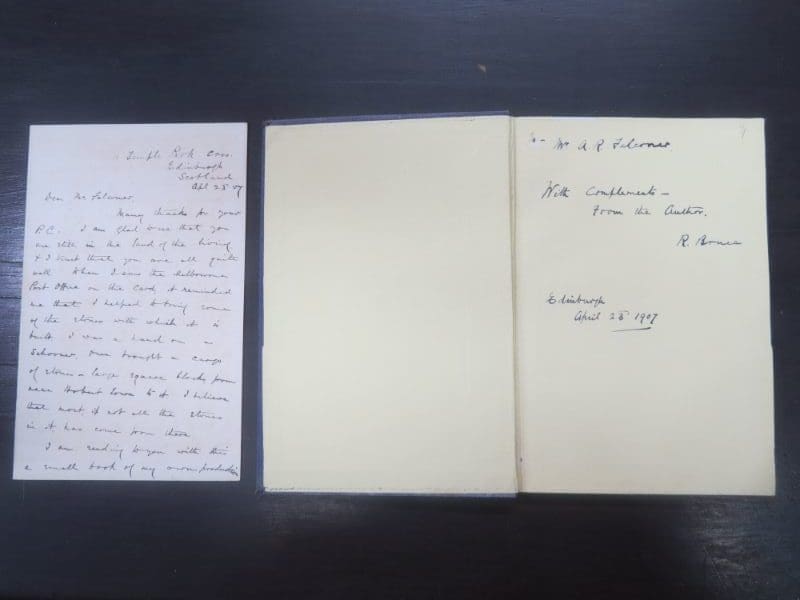 11 Temple Park Cres.
Edinburgh
Scotland
Apl 23 07
Dear Mr Falconer
Many thanks for your
P.C. I am glad to see that you
are still in the land of the living
& I trust that you are all quite
well When I saw the Melbourne
Post Office on the Card it reminded
me that I helped to bring some
of the stones with which it is
built I was a hand on a
Schooner, brought a cargo
of stones large square blocks from
near Hobart Town to it I believe
that most if not all the stones
in it has come from there
I am sending to you with this
a small book of my own production
To Mr A. R Falconer.
With Complements -
From the Author.
R. Bruce
Edinburgh
April 23 1907